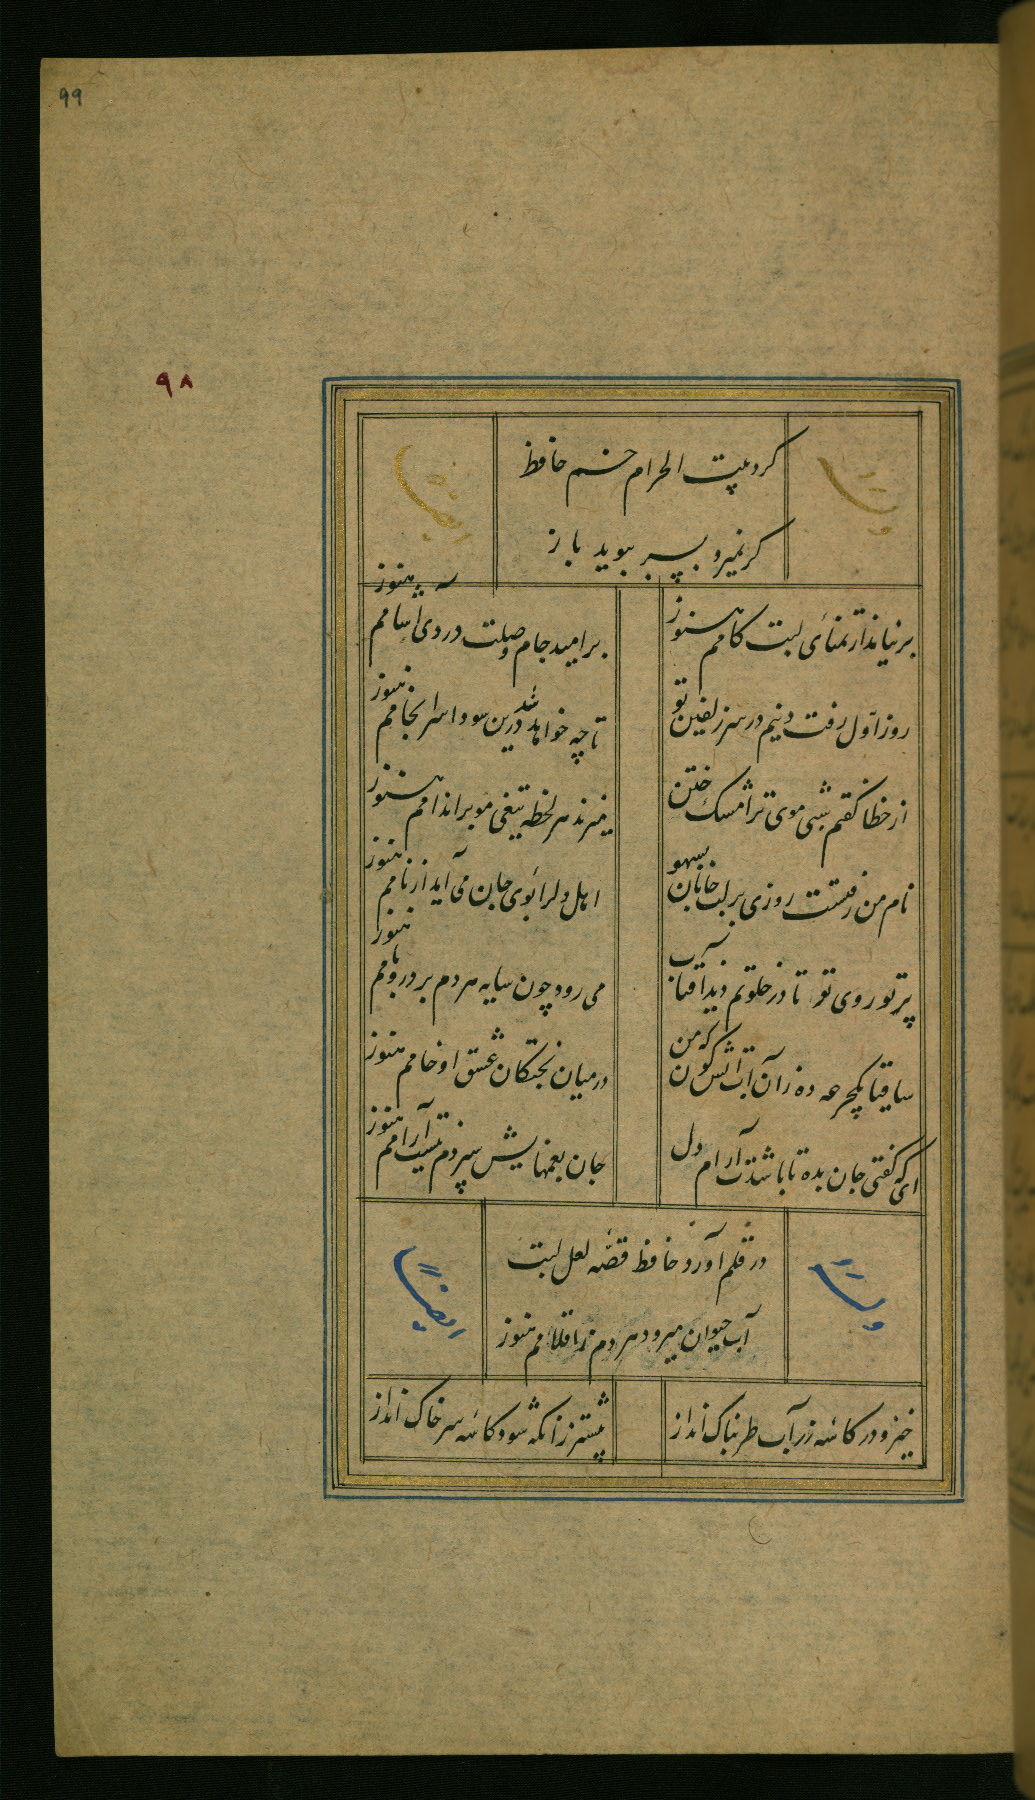 99
٩٨
گرد بیت الحرام خم حافظ
گر نمیرد بسر بپوید باز
وله
ایضا
بر نیامد از تمنای لبت کامم هنوز
بر امید جام وصلت دردی آشامم هنوز
روز اول رفت دینم در سر زلفین تو
تا چه خواهد شد درین سودا سرانجامم هنوز
از خطا گفتم شبی موی ترا مشک ختن
میزند هر لحظه تیغی مو بر اندامم هنوز
نام من رفتست روزی بر لب جانان بسهو
اهل دلرا بوی جان می آید از نامم هنوز
پرتو روی تو تا در خلوتم دید آفتاب
می رود چون سایه هر دم بر در و بامم هنوز
ساقیا یکجرعه ده زان آب آتش گون که من
در میان پختگان عشق او خامم هنوز
ای که گفتی جان بده تا باشدت آرام دل
جان بغمهایش سپردم نیست آرامم هنوز
در قلم آورد حافظ قصه لعل لبت
آب حیوان میرود هر دم ز اقلامم هنوز
وله
ایضا
خیز و در کاسه زر آب طربناک انداز
پیشتر زانکه شود کاسه سر خاک انداز